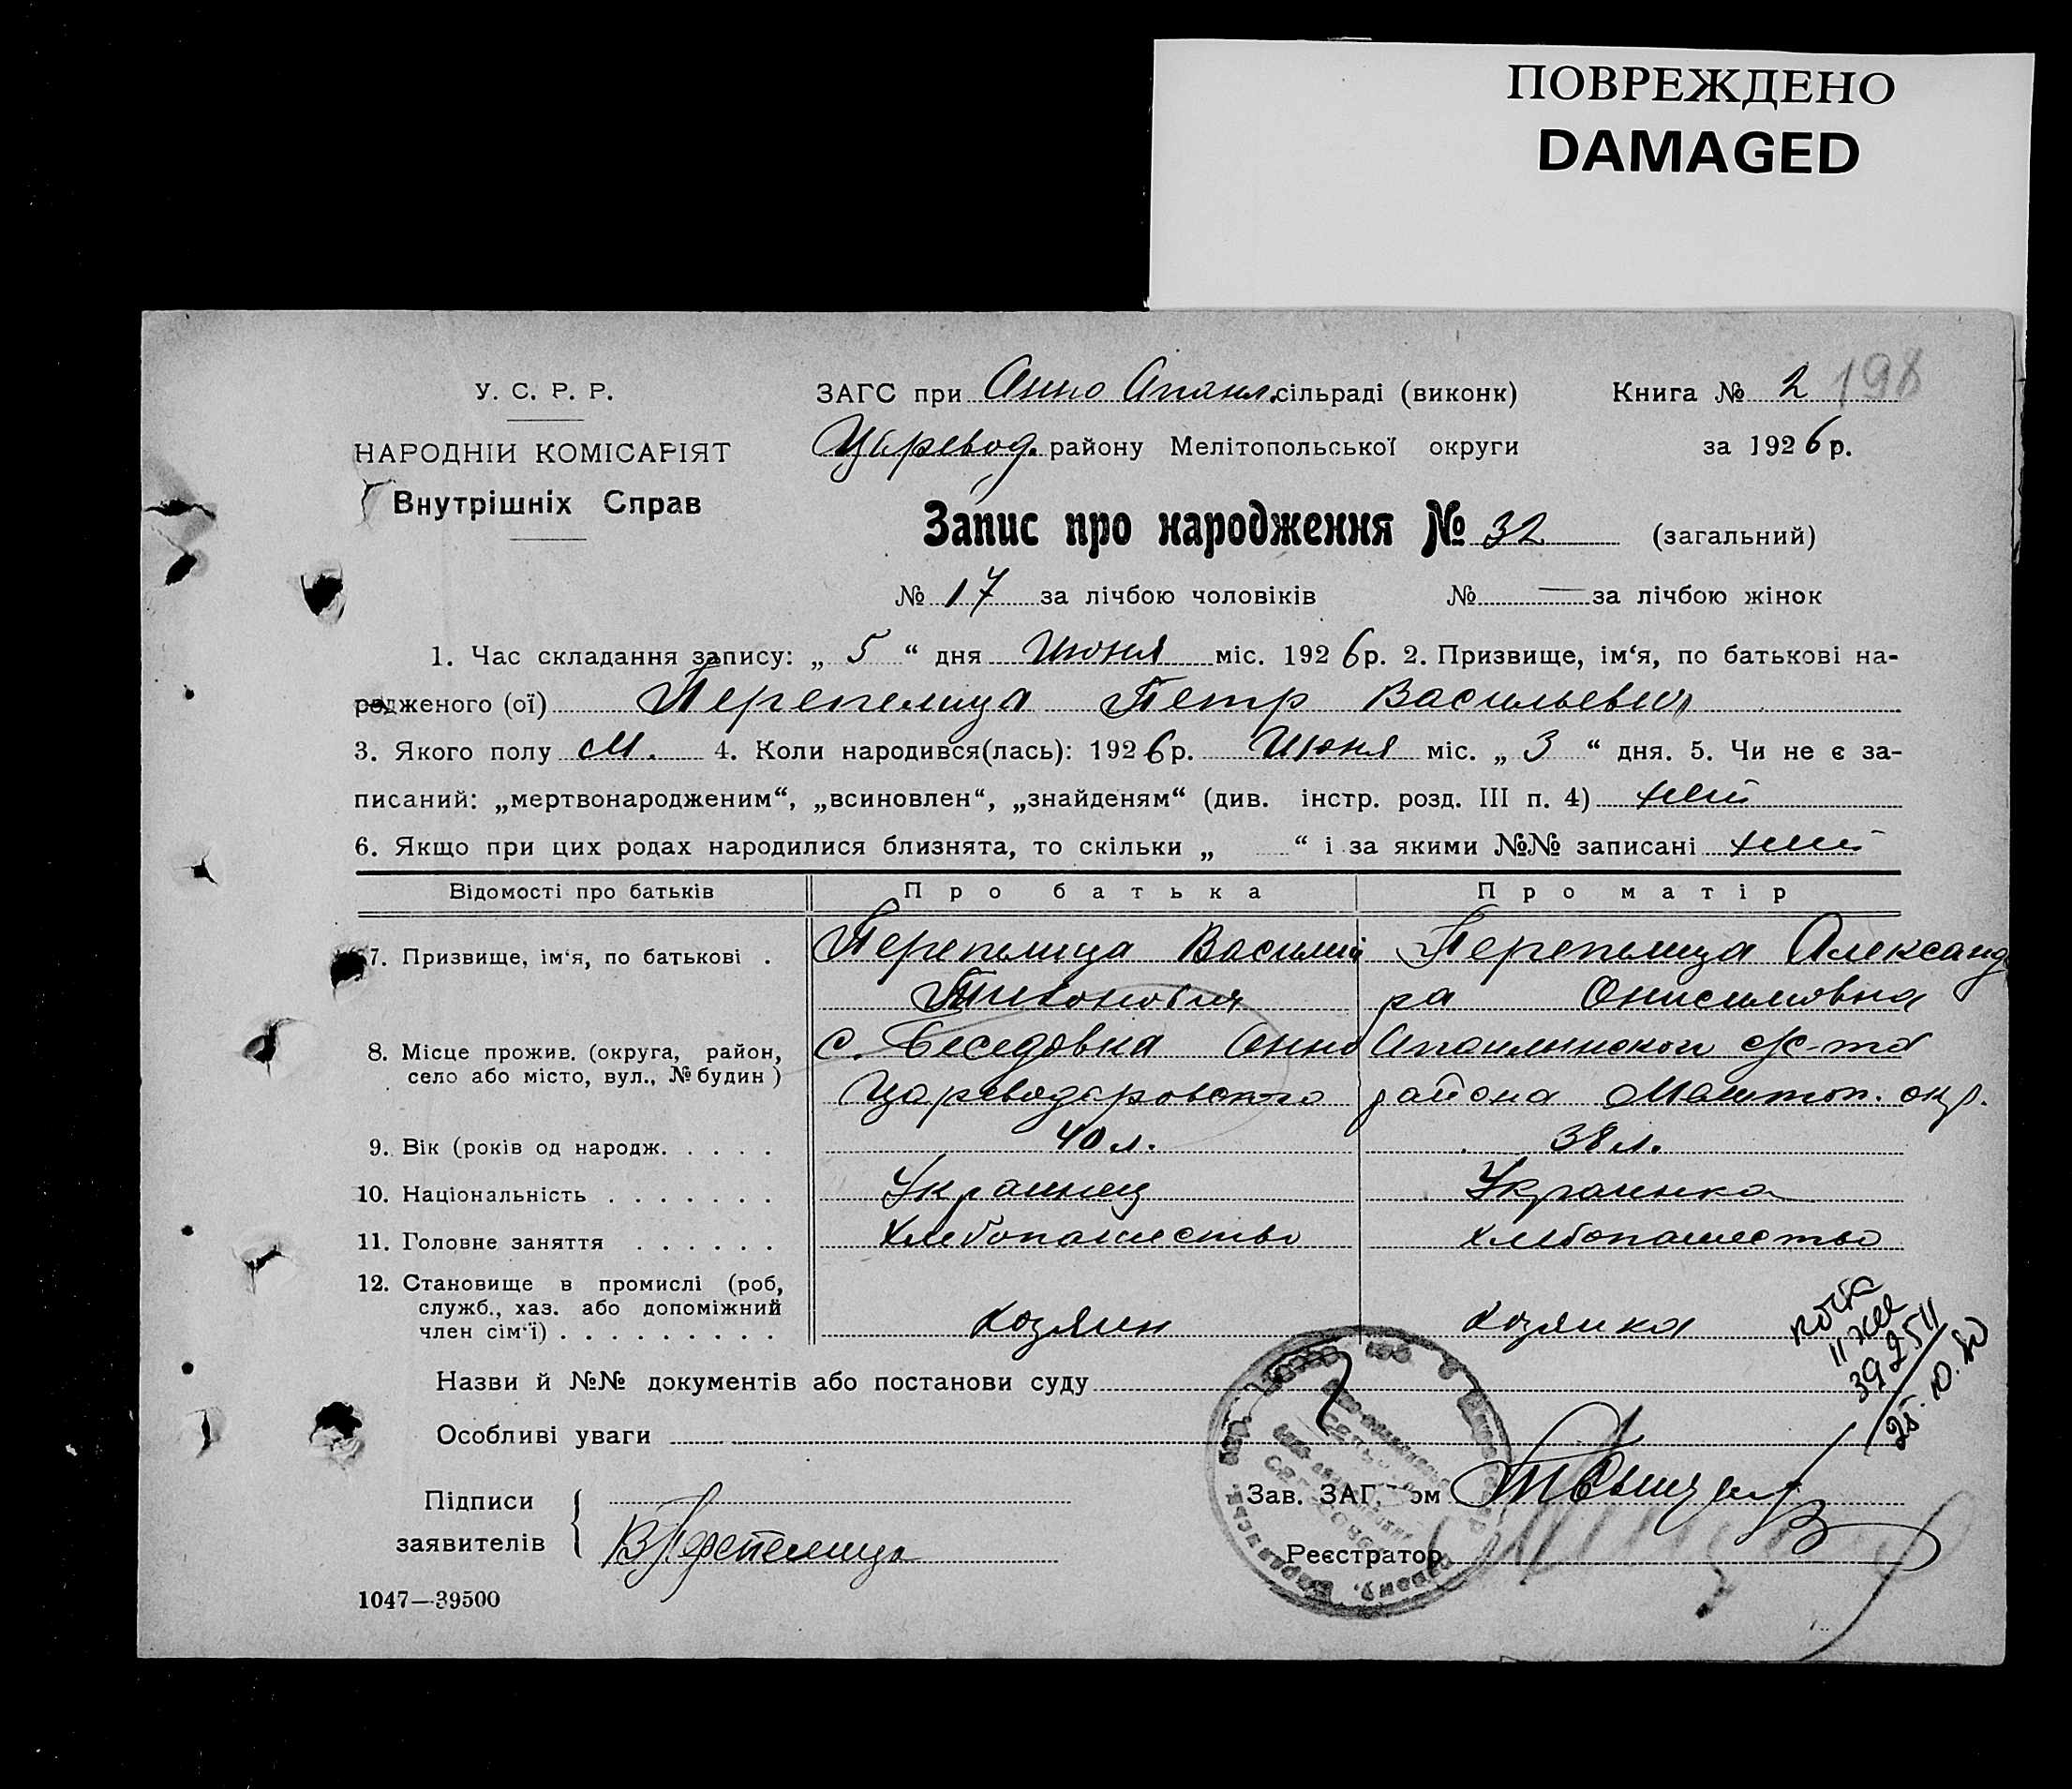 ПОВРЕЖДЕНО
DAMAGED
У. С. Р. Р.
НАРОДНІЙ КОМІСАРІЯТ
Внутрішніх Справ
ЗАГС при Анно Апанл. сільраді (виконк)
Царевод. району Мелітопольської округи
Книга № 2 198
за 1926 р.
Запис про народження № 32 (загальний)
№ 17 за лічбою чоловіків № — за лічбою жінок
1. Час складання запису: „ 5 “ дня Июня міс. 1926 р. 2. Призвище, ім‘я, по батькові на-
родженого (ої) Перепелица Петр Васильевич
3. Якого полу М. 4. Коли народився(лась): 1926 р. Июня міс. „ 3 “ дня. 5. Чи не є за-
писаний: „мертвонародженим“, „всиновлен“, „знайденям“ (див. інстр. розд. III п. 4)
6. Якщо при цих родах народилися близнята, то скільки „ “ і за якими №№ записані
Відомості про батьків Про батька Про матір
7. Призвище, ім‘я, по батькові . Перепелица Василий Перепелица Александ
Тихонович ра Онисимовна
8. Місце прожив. (округа, район, с. Беседовка Анно
село або місто, вул., № будин) Цареводаровского района Мелитоп. окр.
9. Вік (років од народж. . . . . 40 л. 38 л.
10. Національність . . . . . . . Украинец Украинка
11. Головне заняття . . . . . . Хлебопашество хлебопашество
12. Становище в промислі (роб,
служб., хаз. або допоміжний
член сім‘ї) . . . . . . . . . Хозяин Хозяика
Назви й №№ документів або постанови суду
39 2511
25.10.80
Особливі уваги
Підписи
заявителів
В Перепелица
Зав. ЗАГ ом
Реєстратор
1047—39500